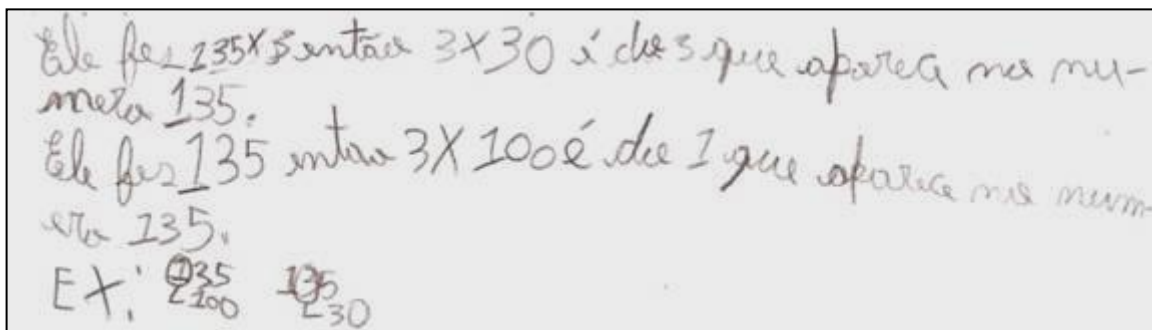 Ele fez 135x3 então 3X30 é do 3 que aparece no nu-
mero 135.
Ele fez 135 então 3X100 é do 1 que aparece no num-
ero 135.
EX: 135 135
100 30